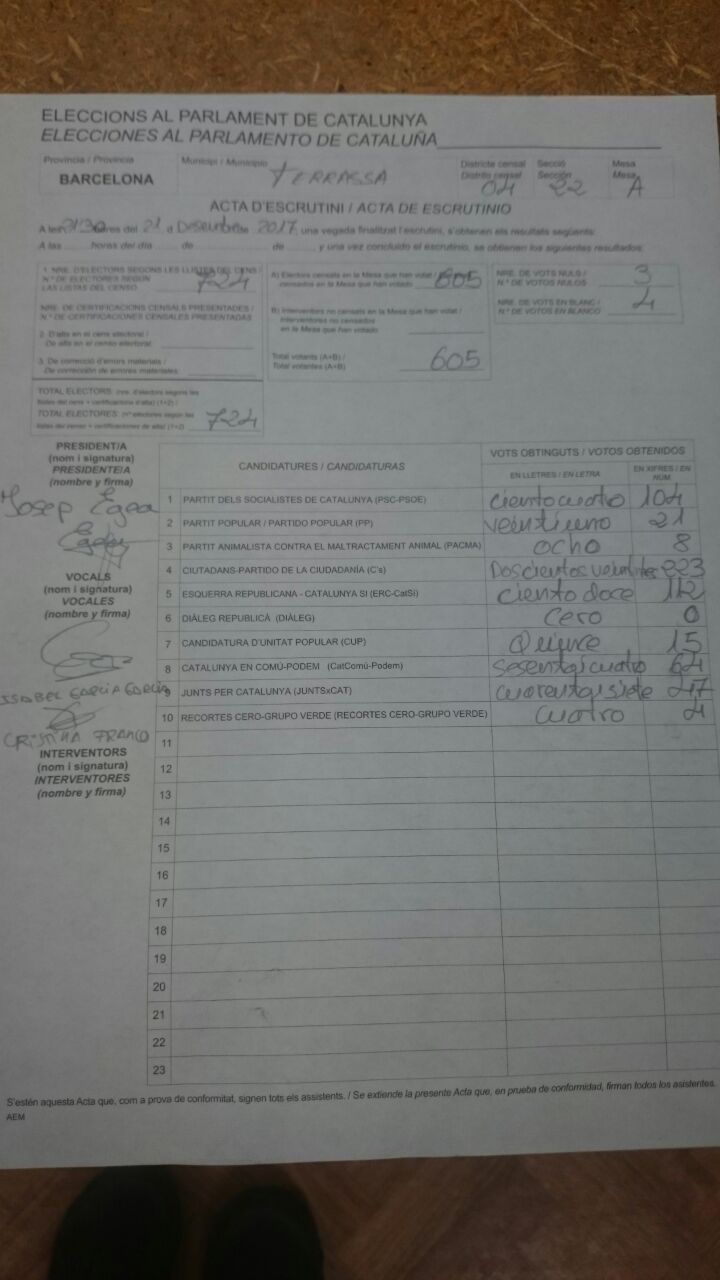 ELECCIONS AL PARLAMENT DE CATALUNYA
ELECCIONES AL PARLAMENTO DE CATALUÑA
Provincia / Provincia
BARCELONA
Municipi / Municipio
TERRASSA
Districte censal
Distrito censal
04
Secció
Sección
22
Mesa
Mesa
A
ACTA D'ESCRUTINI / ACTA DE ESCRUTINIO
A les 21'30 hores del 21 d Desembre de 2017, una vegada finalitzat l'escrutini, s'obtenen els resultats següents:
A las horas del día de de y una vez concluido el escrutinio, se obtienen los siguientes resultados:
1. NRE. D'ELECTORS SEGONS LES LLISTES DEL CENS /
N.º DE ELECTORES SEGÚN
LAS LISTAS DEL CENSO
724
NRE. DE CERTIFICACIONS CENSALS PRESENTADES /
N.º DE CERTIFICACIONES CENSALES PRESENTADAS
2. D'alta en el cens electoral /
De alta en el censo electoral
3. De correcció d'errors materials /
De corrección de errores materiales
TOTAL ELECTORS: (nre. d'electors segons les
llistes del cens + certificacions d'alta) (1+2) /
TOTAL ELECTORES: (nº electores según las
listas del censo + certificaciones de alta) (1+2)
724
A) Electors censats en la Mesa que han votat /
censados en la Mesa que han votado
605
B) Interventors no censats en la Mesa que han votat /
Interventores no censados
en la Mesa que han votado
Total votants (A+B) /
Total votantes (A+B)
605
NRE. DE VOTS NULS /
N.º DE VOTOS NULOS
3
NRE. DE VOTS EN BLANC /
N.º DE VOTOS EN BLANCO
4
PRESIDENT/A
(nom i signatura)
PRESIDENTE/A
(nombre y firma)
Josep Egea
VOCALS
(nom i signatura)
VOCALES
(nombre y firma)
ISABEL GARCIA GARCIA
CRISTINA FRANCO
INTERVENTORS
(nom i signatura)
INTERVENTORES
(nombre y firma)
CANDIDATURES / CANDIDATURAS
VOTS OBTINGUTS / VOTOS OBTENIDOS
EN LLETRES / EN LETRA
EN XIFRES / EN NÚM.
1 PARTIT DELS SOCIALISTES DE CATALUNYA (PSC-PSOE) cientocuatro 104
2 PARTIT POPULAR / PARTIDO POPULAR (PP) veintiuno 21
3 PARTIT ANIMALISTA CONTRA EL MALTRACTAMENT ANIMAL (PACMA) ocho 8
4 CIUTADANS-PARTIDO DE LA CIUDADANÍA (C's) Doscientos veintitres 223
5 ESQUERRA REPUBLICANA - CATALUNYA SÍ (ERC-CatSí) ciento doce 112
6 DIÀLEG REPUBLICÀ (DIÀLEG) cero 0
7 CANDIDATURA D'UNITAT POPULAR (CUP) Quince 15
8 CATALUNYA EN COMÚ-PODEM (CatComú-Podem) sesentaicuatro 64
9 JUNTS PER CATALUNYA (JUNTSxCAT) cuarentaisiete 47
10 RECORTES CERO-GRUPO VERDE (RECORTES CERO-GRUPO VERDE) cuatro 4
11
12
13
14
15
16
17
18
19
20
21
22
23
S'estén aquesta Acta que, com a prova de conformitat, signen tots els assistents. / Se extiende la presente Acta que, en prueba de conformidad, firman todos los asistentes.
AEM